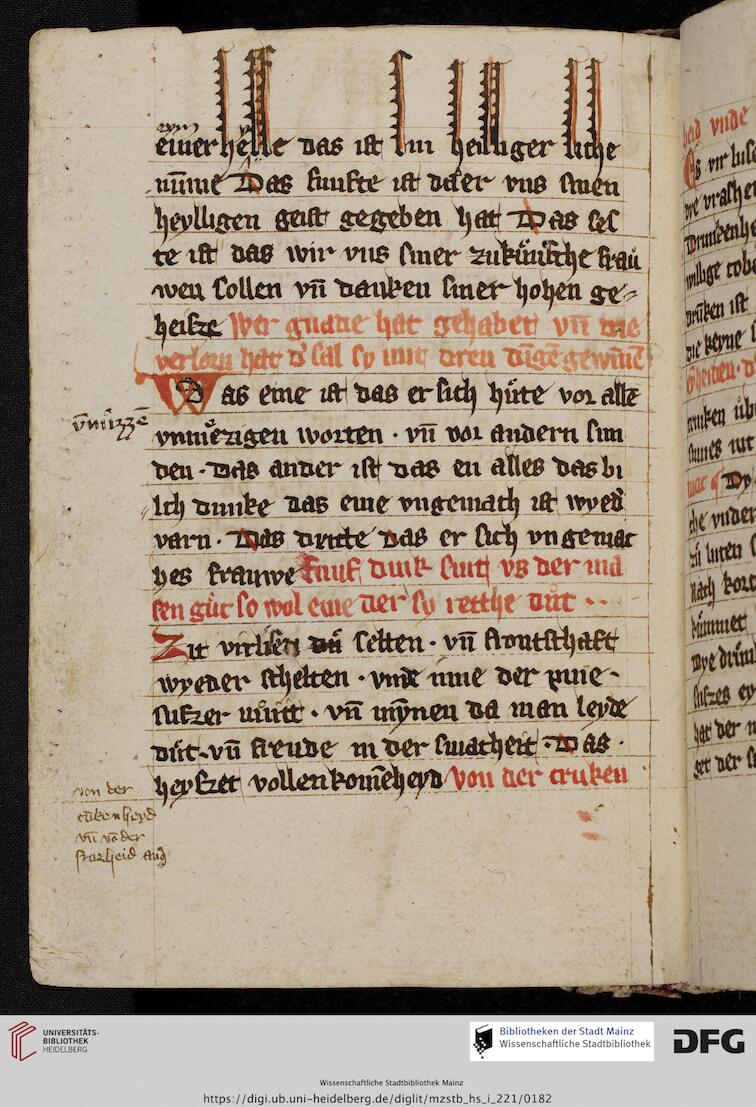 eyn
einer helle das ist sin heiliger liche
nāme Das funfte ist da er vns sinen
heylligen geist gegeben hat Das ses
te ist das wir vns siner zukünftche frau
wen sollen vn̄ danken siner hohen ge⸗
heisze Wer gnade hat gehabet vn̄ die
verlorn hat d' sal sy mit dren dīgē gewīnē
Das eine ist das er sich hüte vor allē
vn̄nüzzē
vnmüezigen worten · vn̄ vor andern sun
den · Das ander ist das en alles das bi
lich dunke das eine vngemach ist wyed'
varn · Das dritte das er sich vngemac
hes frauwe Funf dink sint vs der ma
sen gůt so wol eine der sy retthe důt ··
Zit virlisen důt selten · vn̄ frontschaft
wyeder schelten · vnde inne der pine
sufzer můnt · vn̄ mỹnen da man leyde
důt · vn̄ freude in der smacheit · Das ·
heyszet vollenkomēheyd Von der truken
von der
trukenheyd
vn̄ vō der
starheid
heid vnde
Es vir lusc
Drunkenhe
willige tobe
drüken ist
die keyne s
sunes nit
Dy
che vnder
zů luten
nach kort
kümmet
wye drün
hat der
UNIVERSITÄTS-
BIBLIOTHEK
HEIDELBERG
Bibliotheken der Stadt Mainz
Wissenschaftliche Stadtbibliothek
DFG
Wissenschaftliche Stadtbibliothek Mainz
https://digi.ub.uni-heidelberg.de/diglit/mzstb_hs_i_221/0182